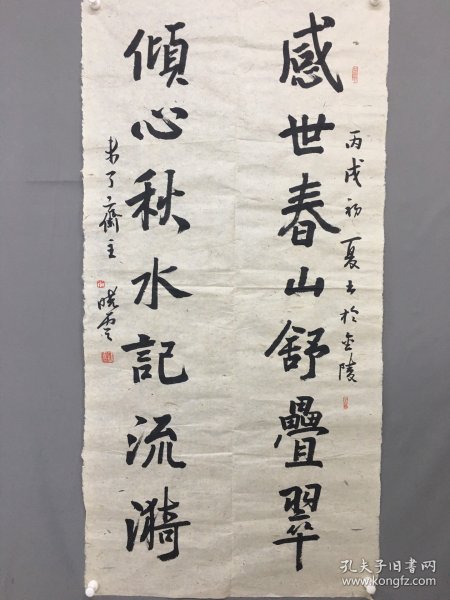 感世春山舒疊翠
丙戌初夏书於金陵
傾心秋水記流漪
未了齋主 曉雲
孔夫子旧书网
www.kongfz.com